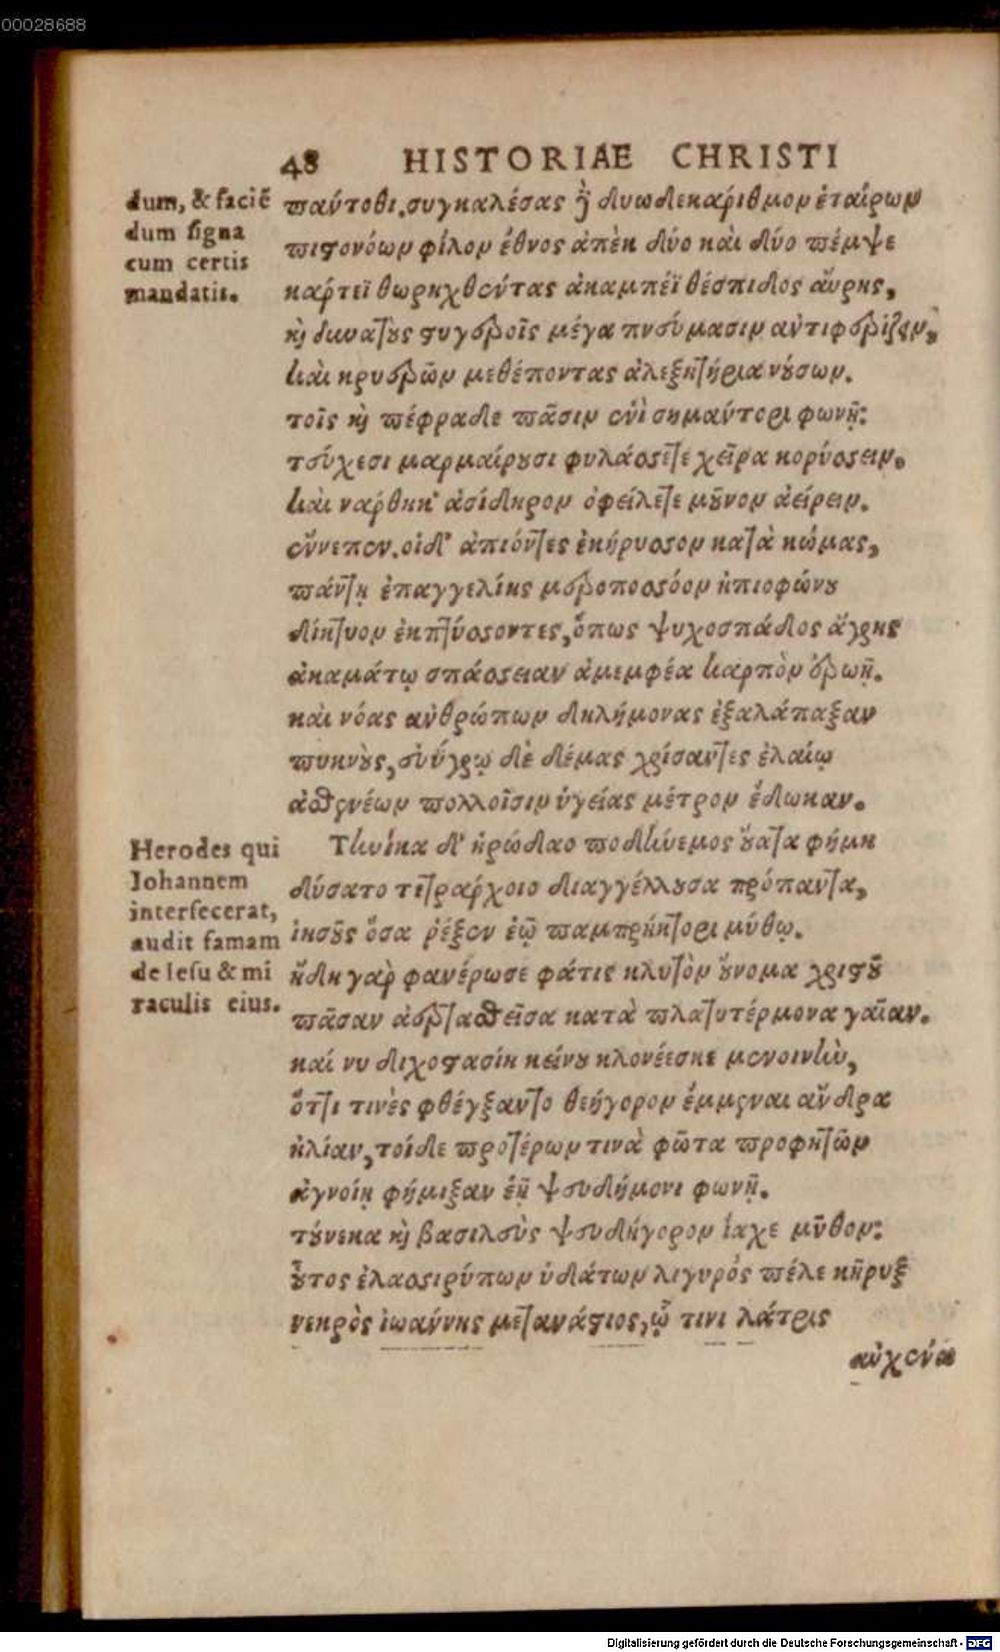 00028688
48 HISTORIAE CHRISTI
dum, & faciē
dum signa
cum certis
mandatis.
πάντοθι. συγκαλέσας ἢ δυωδεκάριθμον ἑταίρων
πιστονόων φίλον ἔθνος ἀπὲκ δύο καὶ δύο πέμψε
κάρτεϊ θωρηχθέντας ἀκαμπέϊ θέσπιδος αὔρης,
καὶ δυνατοὺς στυγεροῖς μέγα πνεύμασιν ἀντιφερίζειν,
καὶ κρυερῶν μεθέποντας ἀλεξητήρια νούσων.
τοῖς καὶ πέφραδε πᾶσιν ἐνὶ σημάντορι φωνῇ:
τεύχεσι μαρμαίρουσι φυλάσσετε χεῖρα κορύσσειν.
καὶ νάρθηκ' ἀσίδηρον ὀφείλετε μοῦνον ἀείρειν.
ἔννεπεν. οἱ δ' ἀπιόντες ἐκήρυσσον κατὰ κώμας,
πάντῃ ἐπαγγελίης μεροποσσόον ἠπιοφώνου
δίκτυον ἐκπτύσσοντες, ὅπως ψυχοσπάδος ἄγρης
ἀκαμάτῳ σπάσσειαν ἀμεμφέα καρπὸν ἐρωῇ.
καὶ νόας ἀνθρώπων δηλήμονας ἐξαλάπαξαν
πυκνοὺς, σὺν ὑγρῷ δὲ δέμας χρίσαντες ἐλαίῳ
ἀσθενέων πολλοῖσιν ὑγείας μέτρον ἔδωκαν.
Herodes qui
Iohannem
interfecerat,
audit famam
de Iesu & mi
raculis eius.
Τηνίκα δ' ἡρώδαο ποδήνεμος οὔατα φήμη
δύσατο τετραρχοιο διαγγέλλουσα πρόπαντα,
ἰησοῦς ὅσα ῥέξεν ἑῷ παμπρήκτορι μύθῳ.
ἤδη γὰρ φανέρωσε φάτις κλυτὸν οὔνομα χριστοῦ
πᾶσαν ἀερταθεῖσα κατὰ πλατυτέρμονα γαῖαν.
καί νυ διχοστασίη κείνου κλονέεσκε μενοινὴν,
ὅττι τινὲς φθέγξαντο θεήγορον ἔμμεναι ἄνδρα
ἠλίαν, τοὶ δὲ προτέρων τινὰ φῶτα προφητῶν
ἀγνοίῃ φήμιξαν ἑῇ ψευδήμονι φωνῇ.
τούνεκα καὶ βασιλεὺς ψευδήγορον ἴαχε μῦθον:
οὗτος ἐλαοσιρύπων ὑδάτων λιγυρός πέλε κῆρυξ
νεκρὸς ἰωάννης μετανάστιος, ᾧ τινι λάτρις
αὐχένα
Digitalisierung gefördert durch die Deutsche Forschungsgemeinschaft - DFG